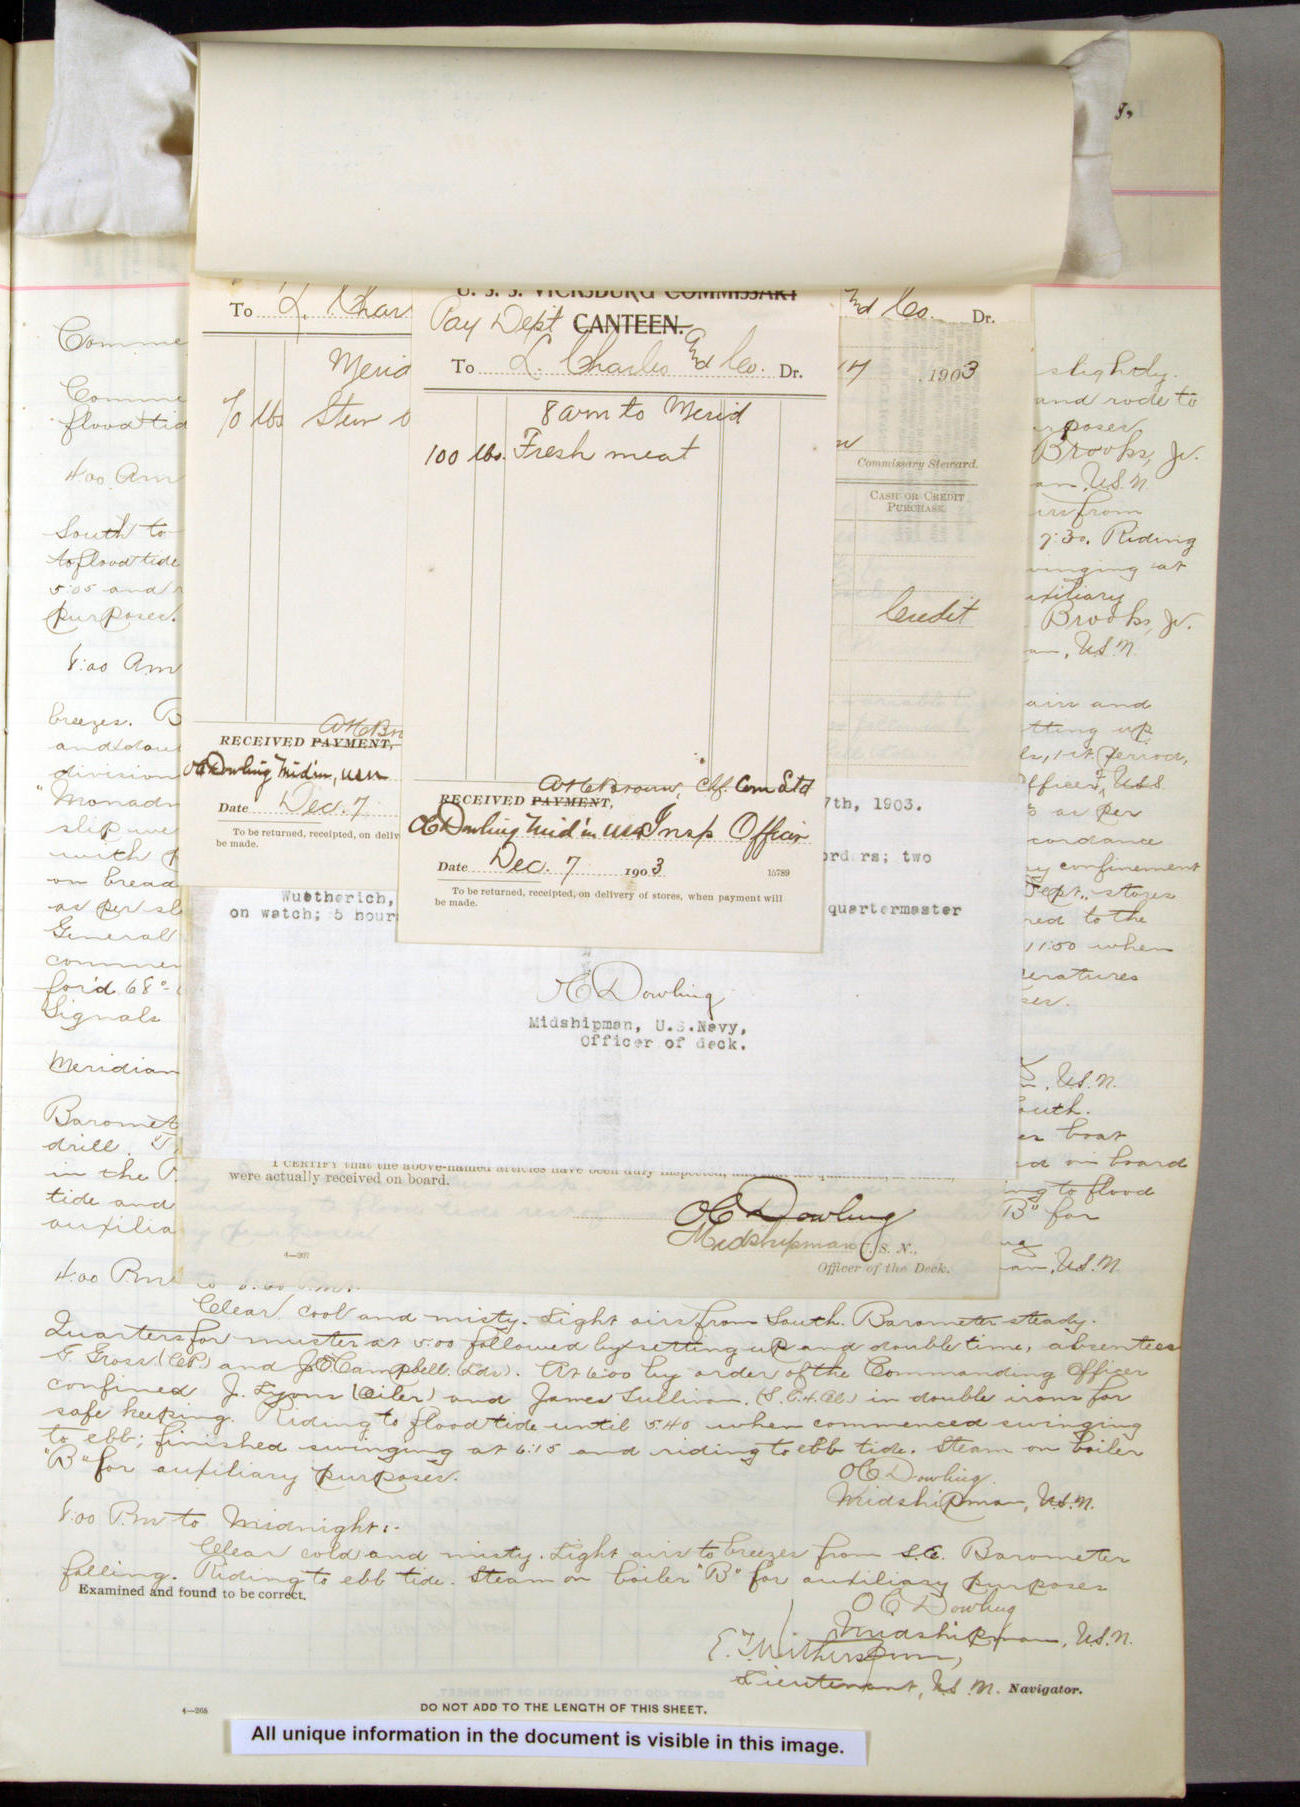 U. S. S. VICKSBURG COMMISSARY
Pay Dept CANTEEN.
To L. Charles and Co. Dr.
8 am to Merid
100 lbs. Fresh meat
RECEIVED PAYMENT,
OC Dowling Mid'n USN Insp Officer
Date Dec. 7 1903
15789
To be returned, receipted, on delivery of stores, when payment will
be made.
To L. Char
Merid
70 lbs Stew
RECEIVED PAYMENT,
OC Dowling Mid'n, USN
Date Dec. 7
To be returned, receipted, on deliv
be made.
and Co. Dr.
1903
Commissary Steward.
CASH OR CREDIT
PURCHASE
Credit
7th, 1903.
orders; two
Wuetherich,
on watch; 5 hour
quartermaster
OC Dowling
Midshipman, U.S.Navy,
Officer of deck.
I CERTIFY that the above-named articles have been duly inspected,
were actually received on board.
OC Dowling
Midshipman U. S. N.,
Officer of the Deck.
4—207
Comme
Comme
flood tid
4:00 Am
South to
to flood tide
5:05 and
purposes.
8:00 Am
breezes. B
and dou
division
"Monadn
slip
with
on bread
as per sl
General
commen
for'd 68°
Signals
Meridian
Baromet
drill.
in the P
tide and
auxilia
slightly.
and rode to
purposes
Brooks, Jr.
an, U.S.N.
airs from
7:30. Riding
swinging at
auxiliary
Brooks, Jr.
an, U.S.N.
airs and
setting up
1st period,
Officer, U.S.S.
as per
cordance
confinement
Dept. stores
red to the
11:50 when
peratures
U.S.N.
South.
boat
on board
to flood
"B" for
an, U.S.N.
4:00 P.m. to 8:00 P.m.
Clear, cool and misty. Light airs from South. Barometer steady.
Quarters for muster at 5:00 followed by setting up and double time, absentees
G. Gross (C.P.) and J.C. Campbell (Lds). At 6:00 by order of the Commanding Officer
confined J. Lyons (Oiler) and James Sullivan. in double irons for
safe keeping. Riding to flood tide until 5:40 when commenced swinging
to ebb; finished swinging at 6:15 and riding to ebb tide. Steam on boiler
"B" for auxiliary purposes.
OC Dowling.
Midshipman, U.S.N.
8:00 P.m to Midnight:-
Clear cold and misty. Light airs to breezes from S.E. Barometer
falling. Riding to ebb tide. Steam on boiler "B" for auxiliary purposes
Examined and found to be correct.
OC Dowling
Midshipman, U.S.N.
E. T. Witherspoon,
Lieutenant, U.S.N. Navigator.
DO NOT ADD TO THE LENGTH OF THIS SHEET.
All unique information in the document is visible in this image.